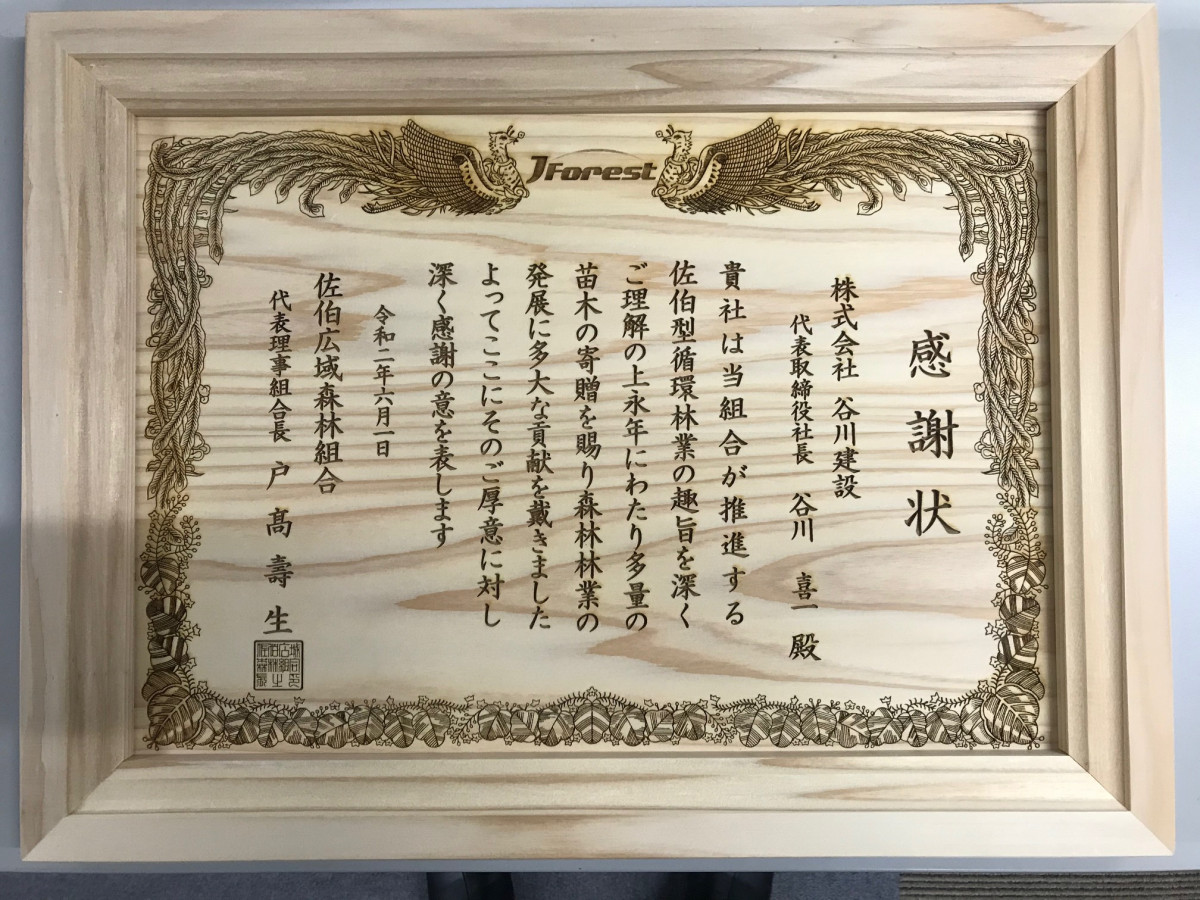 JForest
感謝状
株式会社 谷川建設
代表取締役社長 谷川 喜一 殿
貴社は当組合が推進する
佐伯型循環林業の趣旨を深く
ご理解の上永年にわたり多量の
苗木の寄贈を賜り森林林業の
発展に多大な貢献を戴きました
よってここにそのご厚意に対し
深く感謝の意を表します
令和二年六月一日
佐伯広域森林組合
代表理事組合長 戸髙壽生